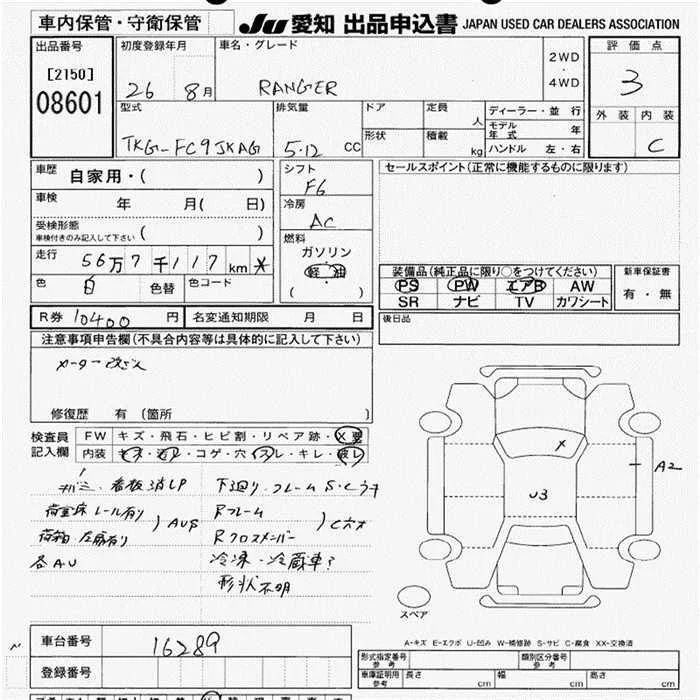 車内保管・守衛保管
JU 愛知 出品申込書 JAPAN USED CAR DEALERS ASSOCIATION
出品番号 初度登録年月 車名・グレード 2WD・4WD 評価点
[2150] 26 8月 RANGER 3
08601 外装 内装
型式 排気量 ドア 定員 人 ディーラー・並行
TKG-FC9JKAG 5.12 CC 形状 積載 kg モデル年式 年 C
ハンドル 左・右
車歴 自家用・( ) シフト F6 セールスポイント(正常に機能するものに限ります)
車検 年 月( 日) 冷房 AC
受検形態 車検付きのみ記入して下さい ( )
燃料 ガソリン
走行 56万7千117km * 軽油 装備品(純正品に限り○をつけてください) 新車保証書
( ) PS PW エアB AW 有・無
色 白 色替 色コード SR ナビ TV カワシート
R券 10400円 名変通知期限 月 日 後日品
注意事項申告欄(不具合内容等は具体的に記入して下さい)
メーター改ざん
修復歴 有(箇所 )
検査員記入欄 FW キズ・飛石・ヒビ割・リペア跡・X要
内装 キズ・汚レ・コゲ・穴・スレ・キレ・破レ
看板消しP 下廻り・フレームS・C
レール有り Rフレーム
AUS C穴大
左扉有り Rクロスメンバー
各A・U 冷凍・冷蔵車?
形状不明
X
U3
A2
スペア
A-キズ E-エクボ U-凹み W-補修跡 S-サビ C-腐食 XX-交換済
車台番号 16289
登録番号
型式指定番号 参考 類別区分番号 参考
車庫証明用 参考 長さ cm 幅 cm 高さ cm